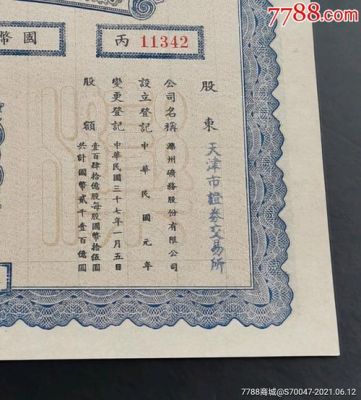 7788.com
國幣
丙 11342
股東 天津市證券交易所
公司名稱 灤州礦務股份有限公司
設立登記 中華民國元年
變更登記 中華民國三十七年一月五日
股額 壹百肆拾億股每股國幣拾伍圓
共計國幣貳千壹百億圓
7788商城@S70047-2021.06.12